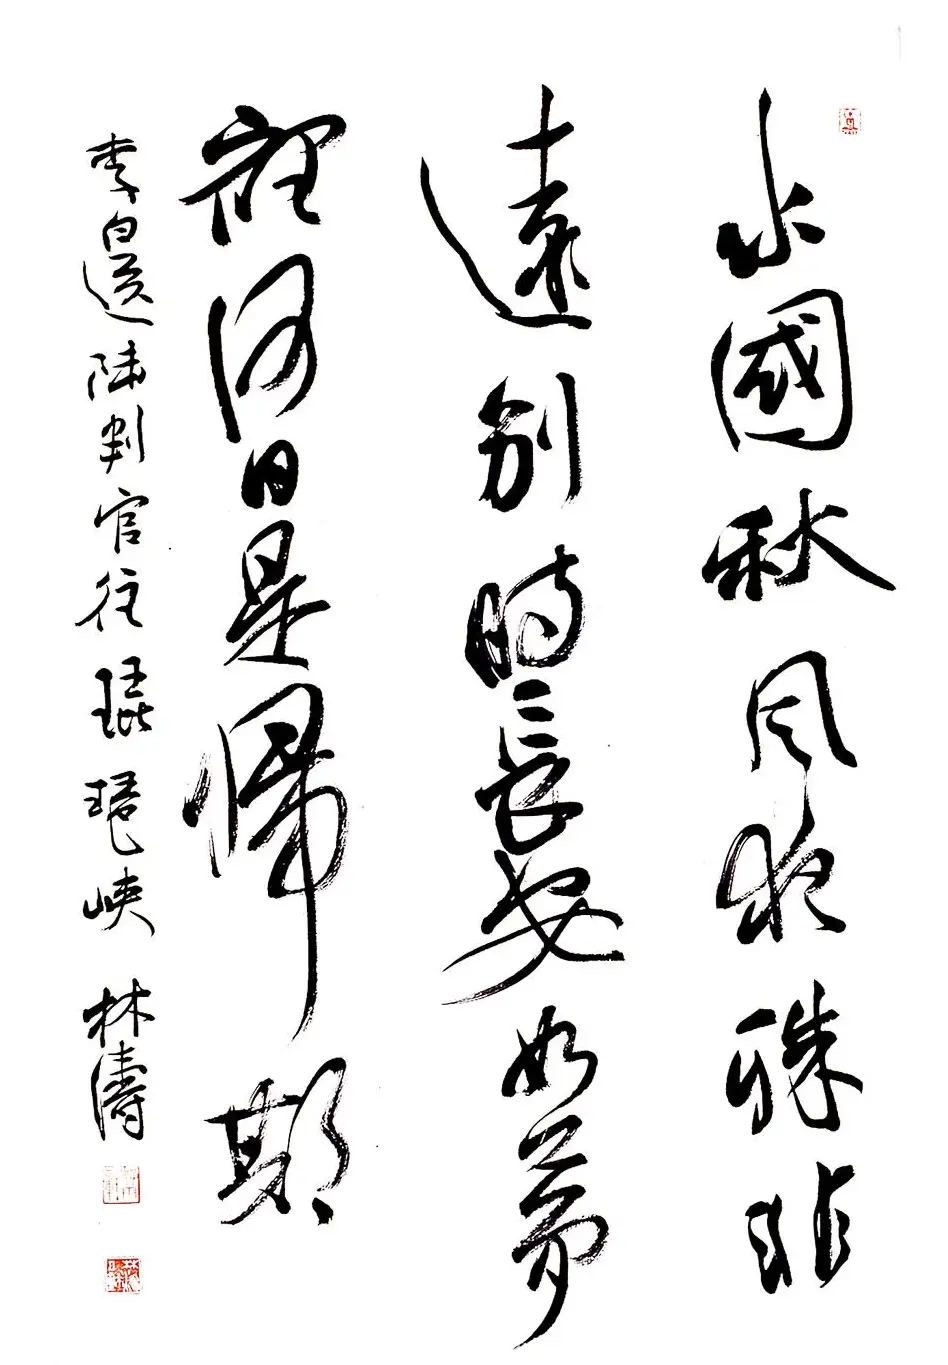 水國秋風夜殊非
遠別時長安如夢
裡何日是歸期
李白送陆判官往琵琶峡 林濤